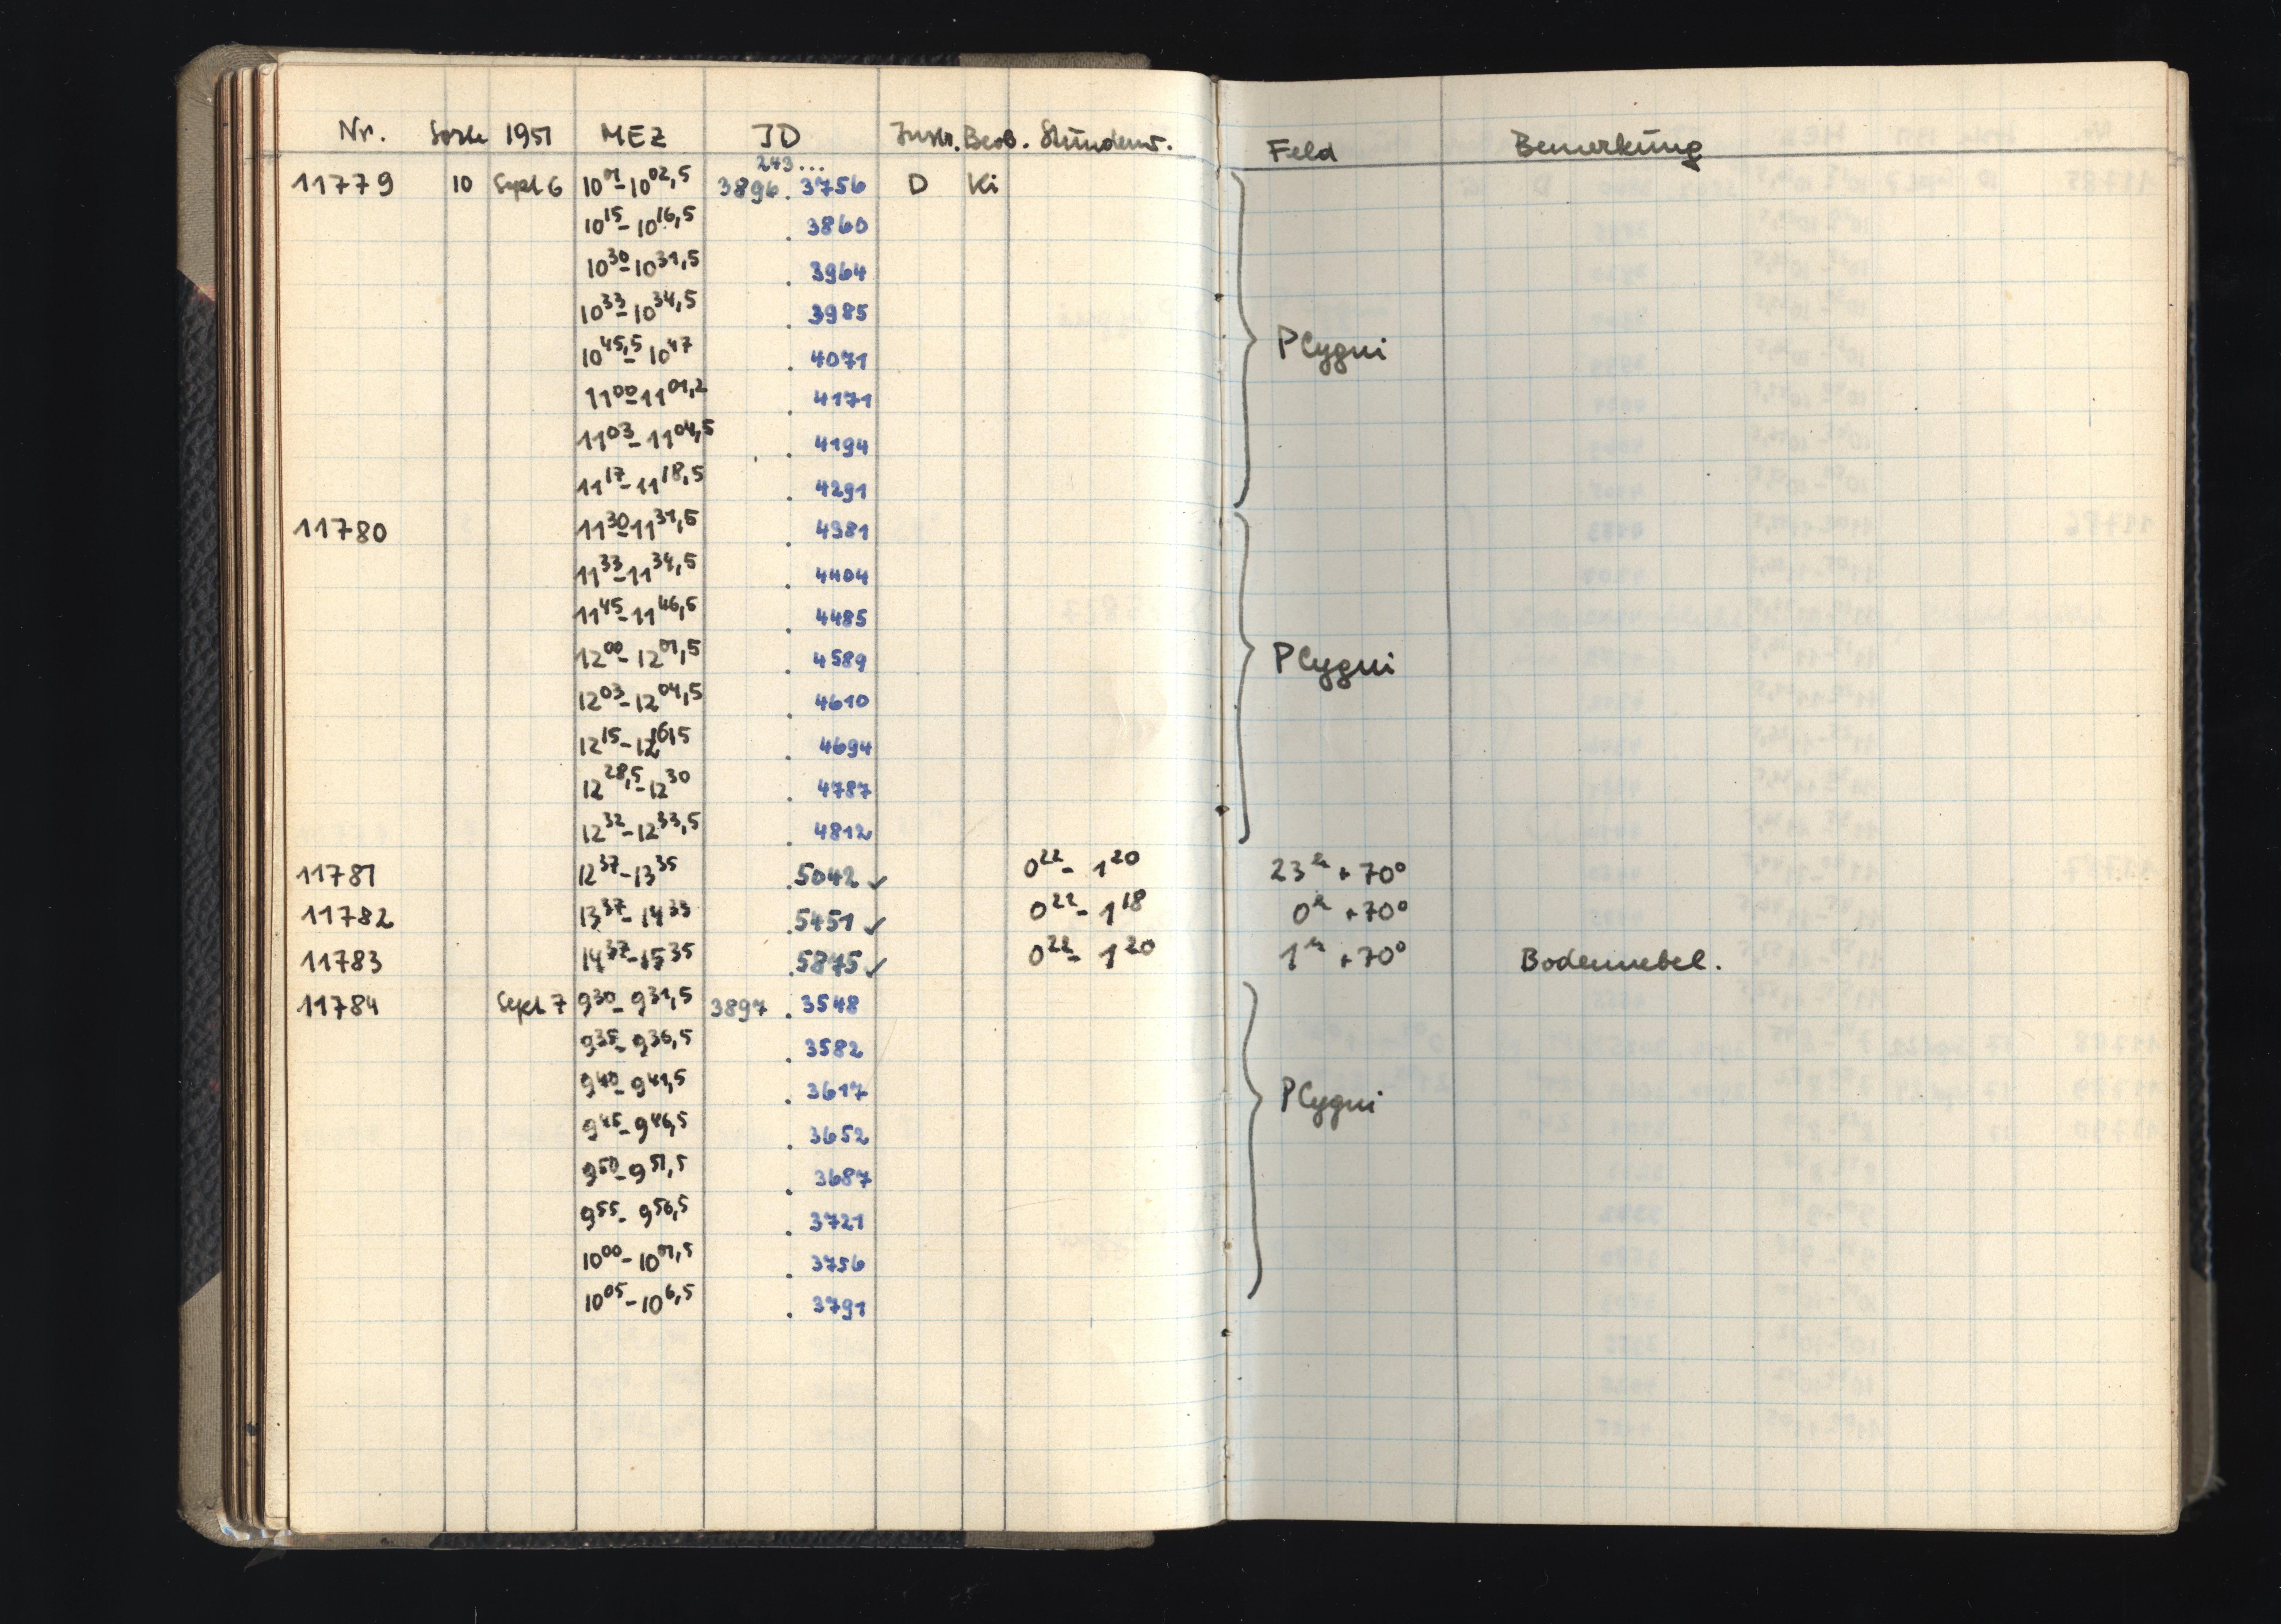 Nr. Sorte 1951 MEZ JD Instr. Beob. Stundenw. Feld Bemerkung
243...
11779 10 Sept 6 10⁰¹-10⁰²,⁵ 3896.3756 D Ki
10¹⁵-10¹⁶,⁵ .3860
10³⁰-10³¹,⁵ .3964
10³³-10³⁴,⁵ .3985
10⁴⁵,⁵-10⁴⁷ .4071 P Cygni
11⁰⁰-11⁰¹,² .4171
11⁰³-11⁰⁴,⁵ .4194
11¹⁷-11¹⁸,⁵ .4291
11780 11³⁰-11³¹,⁵ .4381
11³³-11³⁴,⁵ .4404
11⁴⁵-11⁴⁶,⁵ .4485
12⁰⁰-12⁰¹,⁵ .4589 P Cygni
12⁰³-12⁰⁴,⁵ .4610
12¹⁵-12¹⁶,⁵ .4694
12²⁸,⁵-12³⁰ .4787
12³²-12³³,⁵ .4812
11781 12³⁷-13³⁵ .5042 ✓ 0²²-1²⁰ 23ʰ+70°
11782 13³⁷-14³³ .5451 ✓ 0²²-1¹⁸ 0ʰ+70°
11783 14³⁷-15³⁵ .5875 ✓ 0²²-1²⁰ 1ʰ+70° Bodennebel.
11784 Sept 7 9³⁰-9³¹,⁵ 3897.3548
9³⁵-9³⁶,⁵ .3582
9⁴⁰-9⁴¹,⁵ .3617 P Cygni
9⁴⁵-9⁴⁶,⁵ .3652
9⁵⁰-9⁵¹,⁵ .3687
9⁵⁵-9⁵⁶,⁵ .3721
10⁰⁰-10⁰¹,⁵ .3756
10⁰⁵-10⁶,⁵ .3791